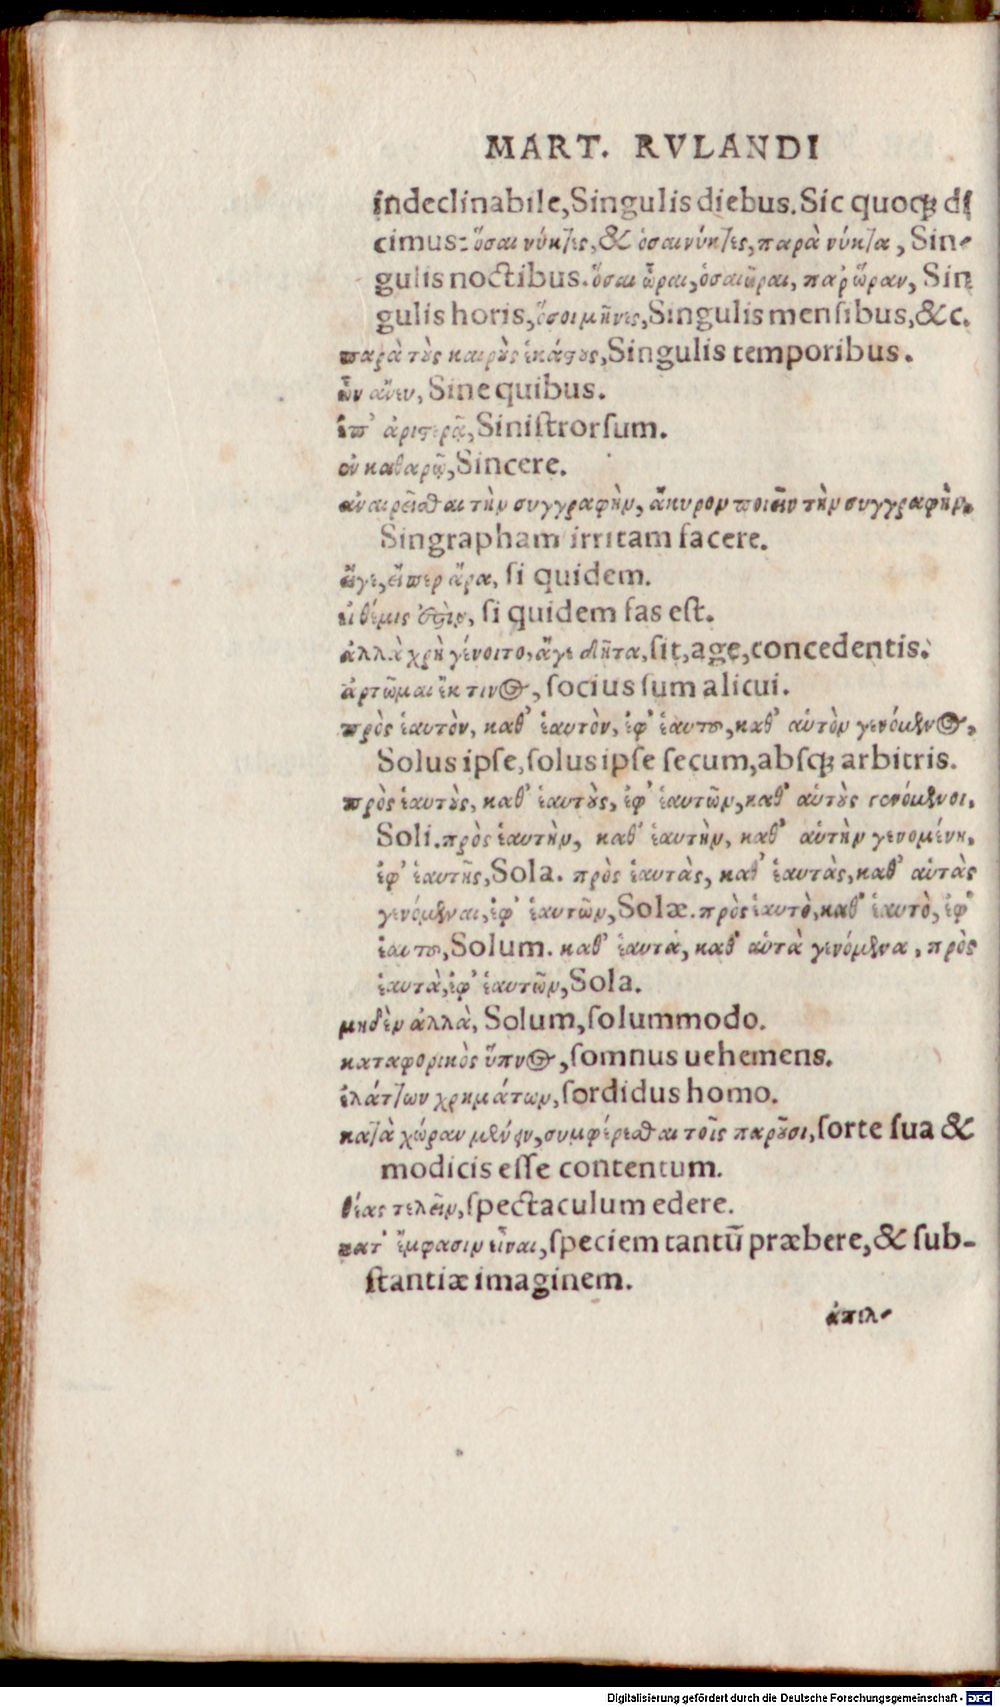 MART. RVLANDI
indeclinabile, Singulis diebus. Sic quoq́ꝫ di
cimus: ὅσαι νύκτες, & ὁσαινύκτες, παρὰ νύκτα, Sin-
gulis noctibus. ὅσαι ὧραι, ὁσαιῶραι, παρ' ὥραν, Sin
gulis horis, ὅσοι μῆνες, Singulis mensibus, &c.
παρὰ τοὺς καιροὺς ἑκάστους, Singulis temporibus.
ὧν ἄνευ, Sine quibus.
ἐπ' ἀριστερᾷ, Sinistrorsum.
ἐν καθαρῷ, Sincere.
ἀναιρεῖσθαι τὴν συγγραφὴν, ἄκυρον ποιεῖν τὴν συγγραφὴν,
Singrapham irritam facere.
εἴγε, εἴπερ ἄρα, si quidem.
εἰ θέμις ἐστὶν, si quidem fas est.
ἀλλὰ χρὴ γένοιτο, ἄγε δῆτα, sit, age, concedentis.
ἀρτῶμαι ἔκ τινος, socius sum alicui.
πρὸς ἑαυτὸν, καθ' ἑαυτὸν, ἐφ' ἑαυτοῦ, καθ' αὑτὸν γενόμενος,
Solus ipse, solus ipse secum, absq́ꝫ arbitris.
πρὸς ἑαυτοὺς, καθ' ἑαυτοὺς, ἐφ' ἑαυτῶν, καθ' αὑτοὺς γενόμενοι,
Soli. πρὸς ἑαυτὴν, καθ' ἑαυτὴν, καθ' αὑτὴν γενομένη,
ἐφ' ἑαυτῆς, Sola. πρὸς ἑαυτὰς, καθ' ἑαυτὰς, καθ' αὑτὰς
γενόμεναι, ἐφ' ἑαυτῶν, Solæ. πρὸς ἑαυτὸ, καθ' ἑαυτὸ, ἐφ'
ἑαυτοῦ, Solum. καθ' ἑαυτὰ, καθ' αὑτὰ γενόμενα, πρὸς
ἑαυτὰ, ἐφ' ἑαυτῶν, Sola.
μηδὲν ἀλλὰ, Solum, solummodo.
καταφορικὸς ὕπνος, somnus uehemens.
ἐλάττων χρημάτων, sordidus homo.
κατὰ χώραν μένειν, συμφέρεσθαι τοῖς παροῦσι, sorte sua &
modicis esse contentum.
θέας τελεῖν, spectaculum edere.
κατ' ἔμφασιν εἶναι, speciem tantū præbere, & sub-
stantiæ imaginem.
ἀπελ-
Digitalisierung gefördert durch die Deutsche Forschungsgemeinschaft - DFG